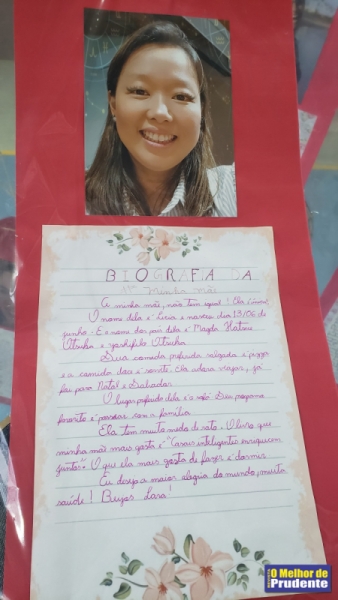 BIOGRAFIA DA
Minha mãe
A minha mãe, não tem igual! Ela é
O nome dela é Lucia e nasceu dia 19/06 de
junho. E o nome dos pais dela é Magda
e
Sua comida preferida salgada é pizza
e a comida doce é sorvete. Ela adora viajar, já
foi para Natal e Salvador.
O lugar preferido dela é o Seu programa
favorito é passear com a família.
Ela tem muito medo de rato. O livro que
minha mãe mais gosta é "Casais inteligentes enriquecem
juntos". O que ela mais gosta de fazer é dormir.
Eu desejo a maior alegria do mundo, muita
saúde! Beijos Lara!
O Melhor de
Prudente